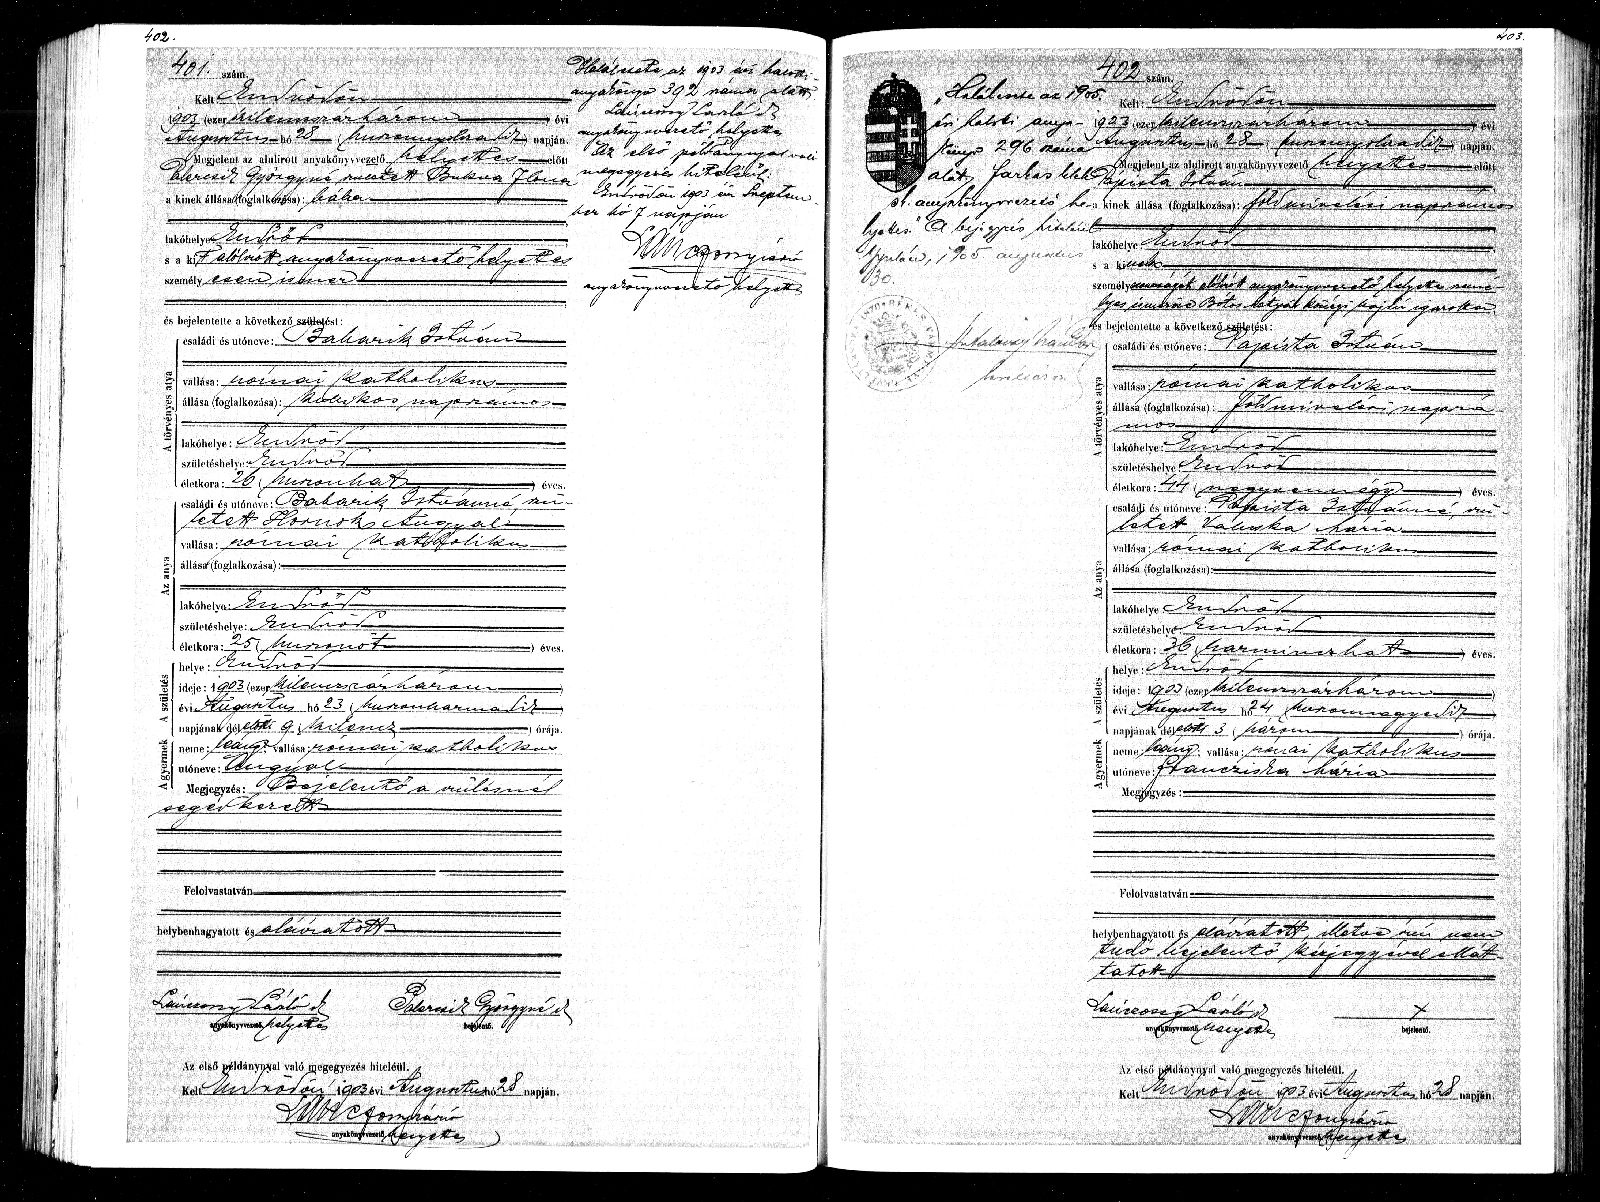 402.
401. szám.
Kelt Endrődön
1903 (ezer kilenczszázhárom) évi
Augusztus hó 28 (huszonnyolczadik) napján.
Megjelent az alulirott anyakönyvvezető helyettes előtt
Györgyné született Bukva Ilona
a kinek állása (foglalkozása): bába
lakóhelye Endrőd
s a kit alólirott anyakönyvvezető helyettes
személyesen ismer
és bejelentette a következő születést:
A törvényes atya
családi és utóneve: Babarik István
vallása: római katholikus
állása (foglalkozása): kubikos napszámos
lakóhelye: Endrőd
születéshelye: Endrőd
életkora: 26 (huszonhat) éves.
Az anya
családi és utóneve: Babarik Istvánné, szü-
letett Hornok Angyal
vallása: római katholikus
állása (foglalkozása):
lakóhelye: Endrőd
születéshelye: Endrőd
életkora: 25 (huszonöt) éves.
A születés
helye: Endrőd
ideje: 1903 (ezer kilenczszázhárom)
évi Augusztus hó 23 (huszonharmadik)
napjának délelőtti 9 (kilencz) órája.
A gyermek
neme: leány; vallása: római katholikus
utóneve: Angyal
Megjegyzés: Bejelentő a szülésnél
segédkezett
Felolvastatván
helybenhagyatott és aláíratott
László
anyakönyvvezető helyettes
Györgyné
bejelentő.
Az első példánynyal való megegyezés hiteléül.
Kelt Endrődön 1903 évi Augusztus hó 28 napján.
anyakönyvvezető helyettes
Halálesete az 1903 évi halotti
anyakönyv 392 száma alatt
László
anyakönyvvezető helyettes
Az első példánynyal való
megegyezés hiteléül:
Endrődön 1903 évi Szeptem-
ber hó 7 napján
anyakönyvvezető helyettes
403.
„Halálesete az 1905.
évi halotti anya-
könyv 296 száma
alatt, Farkas
s. anyakönyvvezető he-
lyettes." A bejegyzés hiteléül
Gyulán, 1905 augusztus
30.
402 szám.
Kelt: Endrődön
1903 (ezer kilenczszázhárom) évi
Augusztus hó 28 (huszonnyolczadik) napján.
Megjelent az alulirott anyakönyvvezető helyettes előtt
Pápista István
a kinek állása (foglalkozása): földmivelési napszámos
lakóhelye: Endrőd
s a kinek
személyazonosságát alólirott anyakönyvvezető helyettes szemé-
lyes ismerőse Botos községi igazolta
és bejelentette a következő születést:
A törvényes atya
családi és utóneve: Pápista István
vallása: római katholikus
állása (foglalkozása): földmivelési napszá-
mos
lakóhelye: Endrőd
születéshelye: Endrőd
életkora: 44 (negyvennégy) éves.
Az anya
családi és utóneve: Pápista Istvánné, szü-
letett Valuska Mária
vallása: római katholikus
állása (foglalkozása):
lakóhelye: Endrőd
születéshelye: Endrőd
életkora: 36 (harminczhat) éves.
A születés
helye: Endrőd
ideje: 1903 (ezer kilenczszázhárom)
évi Augusztus hó 24 (huszonnegyedik)
napjának délelőtti 3 (három) órája.
A gyermek
neme: leány; vallása: római katholikus
utóneve: Francziska Mária
Megjegyzés:
Felolvastatván
helybenhagyatott és aláíratott, illetve írni nem
tudó bejelentő kézjegyével ellát-
tatott
László
anyakönyvvezető helyettes
+
bejelentő.
Az első példánynyal való megegyezés hiteléül.
Kelt Endrődön 1903 évi Augusztus hó 28 napján
anyakönyvvezető helyettes